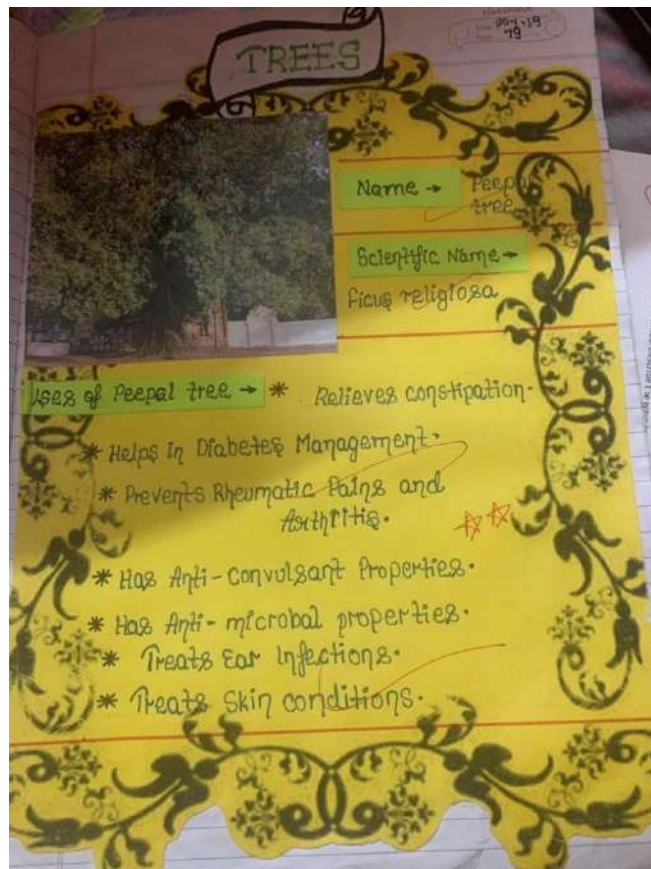 TREES
79
Name → Peepal
tree
Scientific Name →
Ficus religiosa
Uses of Peepal tree → * Relieves constipation.
* Helps in Diabetes Management.
* Prevents Rheumatic Pains and
Arthritis.
* Has Anti-Convulsant Properties.
* Has Anti-microbal properties.
* Treats Ear Infections.
* Treats Skin conditions.